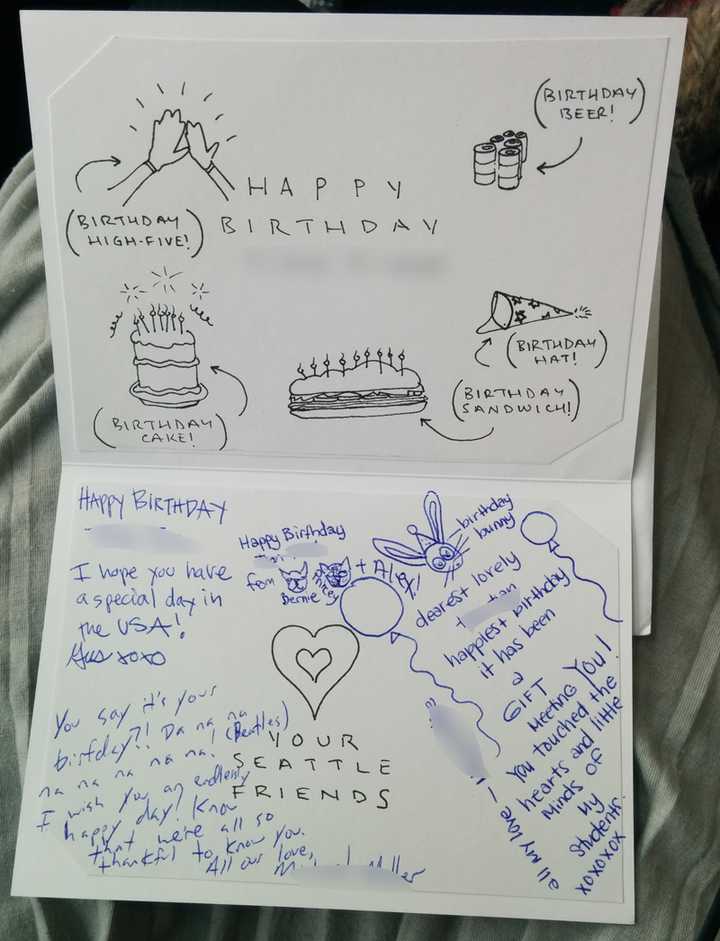 (BIRTHDAY
BEER!)
HAPPY
(BIRTHDAY
HIGH-FIVE!)
BIRTHDAY
(BIRTHDAY
HAT!)
(BIRTHDAY
SANDWICH!)
(BIRTHDAY
CAKE!)
HAPPY BIRTHDAY
I hope you have
a special day in
the USA!
Gus xoxo
Happy Birthday
from
Bernie
+ Alex!
birthday
bunny
dearest lovely
happiest birthday
it has been
a
GIFT
MEETING YOU!
You touched the
hearts and little
Minds of
My
Students.
xoxoxox
all my love
You say it's your
birfday?! Da na na
na na na na na! (Beatles)
I wish you an endlessly
happy day! Know
that we're all so
thankful to know you.
All our love,
YOUR
SEATTLE
FRIENDS